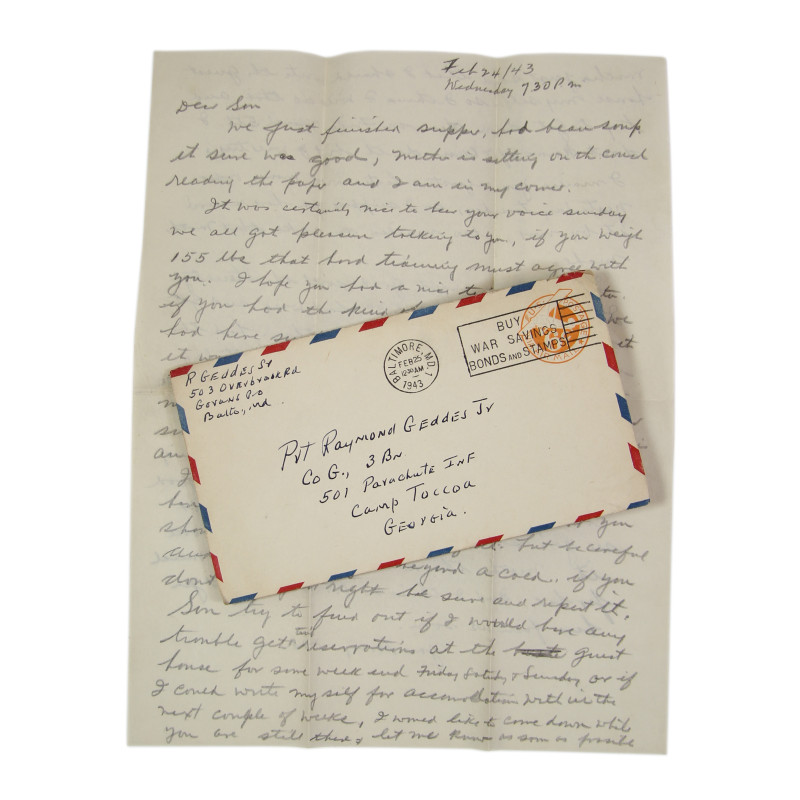 Feb 24/43
Wednesday 730 Pm
Dear Son
We just finished supper, had bean soup
it sure was good, Mother is sitting on the couch
reading the paper and I am in my corner.
It was certainly nice to hear your voice sunday
we all got pleasure talking to you, if you weigh
155 lbs that hard training must agree with
you. I hope you had a nice
if you had the kind
had here
it
R GEDDES Sr
503 OVERBROOK RD
GOVANS P.O
Balto, Md.
BALTIMORE, MD. 1
FEB 25
12:30 AM
1943
BUY
WAR SAVINGS
BONDS AND STAMPS
PVT RAYMOND GEDDES Jr
Co G., 3 BN
501 PARACHUTE INF
CAMP TOCCOA
GEORGIA.
you
but be careful
dont beyond a cold. if you
right be sure and report it,
Son try to find out if I would have any
trouble getting reservations at the guest
house for some week end Friday Saturday & Sunday or if
I could write my self for accomodation with in the
next couple of weeks, I would like to come down while
you are still there, let me know as soon as possible